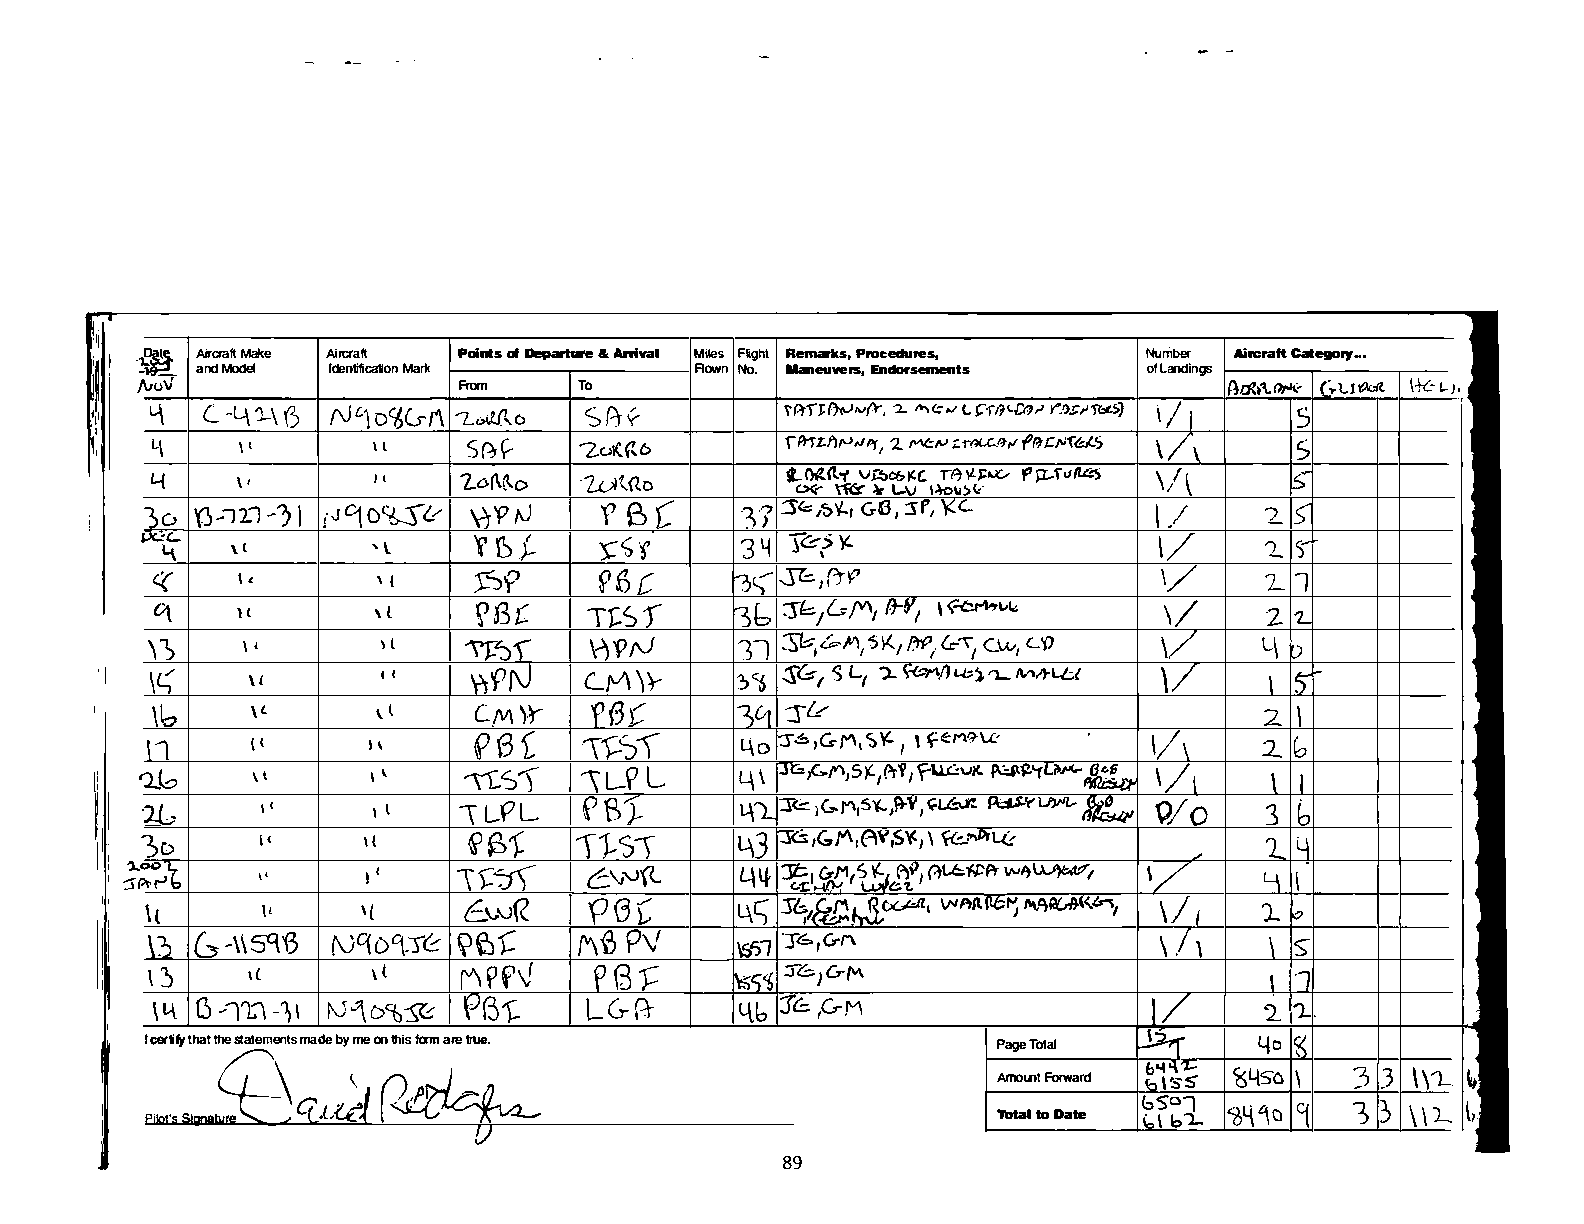 Date Aircraft Make Aircraft Points of Departure & Arrival Miles Flight Remarks, Procedures, Number Aircraft Category...
and Model Identification Mark Flown No. Maneuvers, Endorsements of Landings
NOV From To AIRPLANE GLIDER HELI.
4 C-421B N908GM ZORRO SAF TATIANNA, 2 MEN (ITALIAN PAINTERS) 1/1 5
4 " " SAF ZORRO TATIANNA, 2 MEN ITALIAN PAINTERS 1/1 5
4 " " ZORRO ZORRO LARRY VISOSKI TAKING PICTURES 1/1 5
OF & LV HOUSE
30 B-727-31 N908JE HPN PBI 33 JE, SK, GB, JP, KC 1/ 2 5
DEC
4 " " PBI ISP 34 JE, SK 1/ 2 5
8 " " ISP PBI 35 JE, AP 1/ 2 7
9 " " PBI TIST 36 JE, GM, AP, 1 FEMALE 1/ 2 2
13 " " TIST HPN 37 JE, GM, SK, AP, GT, CW, CD 1/ 4 0
15 " " HPN CMH 38 JE, SL, 2 FEMALES 2 MALES 1/ 1 5
16 " " CMH PBI 39 JE 2 1
17 " " PBI TIST 40 JE, GM, SK, 1 FEMALE 1/1 2 6
26 " " TIST TLPL 41 JE, GM, SK, AP, FLEUR PERRY LANG 1/1 1 1
26 " " TLPL PBI 42 JE, GM, SK, AP, FLEUR PERRY LANG 0/0 3 6
30 " " PBI TIST 43 JE, GM, AP, SK, 1 FEMALE 2 4
2002
JAN 6 " " TIST EWR 44 JE, GM, SK, AP, 1/ 4 1
CINDY LOPEZ
11 " " EWR PBI 45 JE, GM, ROGER, WARREN, MARGARET, 1/1 2 6
1 FEMALE
13 G-1159B N909JE PBI MBPV 1557 JE, GM 1/1 1 5
13 " " MPPV PBI 1558 JE, GM 1 7
14 B-727-31 N908JE PBI LGA 46 JE, GM 1/ 2 2
I certify that the statements made by me on this form are true. Page Total 15/7 40 8
Amount Forward 6492 6155 8450 1 3 3 112 6
Pilot's Signature David Rodgers Total to Date 6507 6162 8490 9 3 3 112 6
89